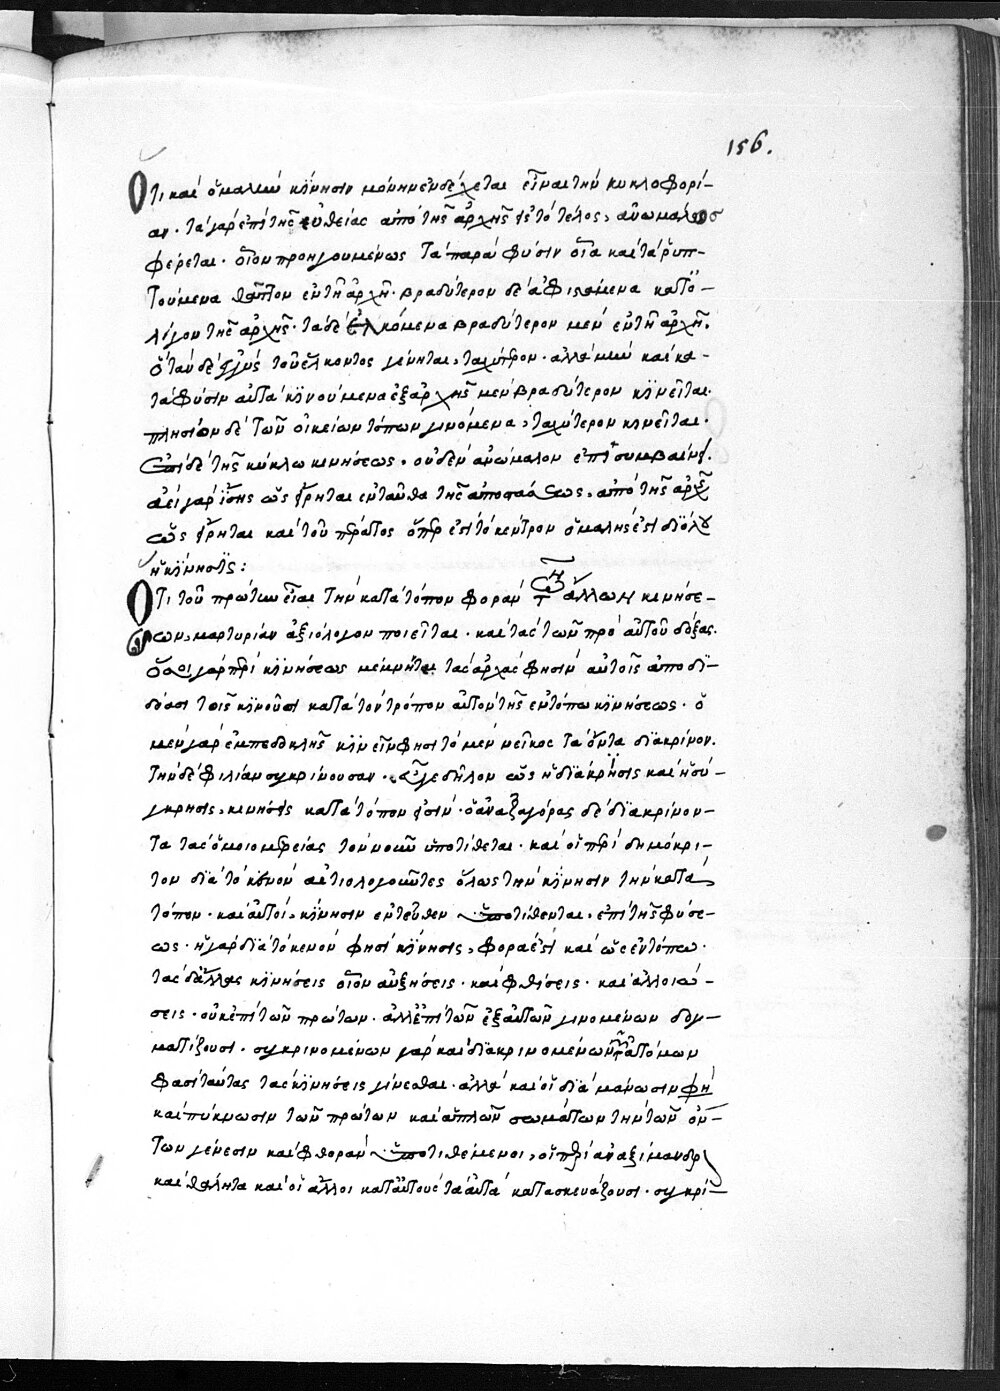 156.
Ὅτι καὶ ὁμαλὴν κίνησιν μόνην ἐνδέχεται εἶναι τὴν κυκλοφορί-
αν. τὰ γὰρ ἐπὶ τῆς εὐθείας ἀπὸ τῆς ἀρχῆς εἰς τὸ τέλος, ἀνωμάλως
φέρεται. οἷον προηγουμένως τὰ παρὰ φύσιν οἷα καὶ τὰ ῥιπ-
τούμενα θᾶττον ἐν τῇ ἀρχῇ. βραδύτερον δὲ ἀφιστάμενα κατ' ὀ-
λίγον τῆς ἀρχῆς. τὰ δὲ ἑλκόμενα βραδύτερον μὲν ἐν τῇ ἀρχῇ.
ὅταν δὲ ἐγγὺς τοῦ ἕλκοντος γένηται, ταχύτερον. ἀλλὰ μὴν καὶ κα-
τὰ φύσιν αὐτὰ κινούμενα ἐξ ἀρχῆς μὲν βραδύτερον κινεῖται.
πλησίον δὲ τῶν οἰκείων τόπων γινόμενα, ταχύτερον κινεῖται.
ἐπὶ δὲ τῆς κύκλω κινήσεως, οὐδὲν ἀνώμαλον ἐπισυμβαίνει.
ἀεὶ γὰρ ἴσης ὡς εἴρηται ἐνταῦθα τῆς ἀποστάσεως, ἀπὸ τῆς ἀρχῆς
ὡς εἴρηται καὶ τοῦ πέρατος ὅπερ ἐστὶ τὸ κέντρον ὁμαλής ἐστι διόλου
ἡ κίνησις:
Ὅτι τοῦ πρώτην εἶναι τὴν κατὰ τόπον φορὰν τῶν ἄλλων κινήσε-
ων, μαρτυρίαν ἀξιόλογον ποιεῖται. καὶ τὰς τῶν πρὸ αὐτοῦ δόξας.
ὅσοι γὰρ περὶ κινήσεως μέμνηνται τὰς ἀρχάς φησιν αὐτοῖς ἀποδι-
δόασι τοῖς κινοῦσι κατὰ τὸν τρόπον αὐτὸν τῆς ἐν τόπω κινήσεως. ὁ
μὲν γὰρ ἐμπεδοκλῆς κινεῖν φησι τὸ μὲν νεῖκος τὰ ὄντα διακρίνον.
τὴν δὲ φιλίαν συγκρίνουσαν. δῆλον ὡς ἡ διάκρισις καὶ ἡ σύ-
γκρισις, κινήσεις κατὰ τόπον εἰσίν. ὁ ἀναξαγόρας δὲ διακρίνον-
τα τὰς ὁμοιομερείας τὸν νοῦν ὑποτίθεται. καὶ οἱ περὶ δημόκρι-
τον διὰ τὸ κενὸν αἰτιολογοῦντες ὅλως τὴν κίνησιν τὴν κατὰ
τόπον. καὶ αὐτοὶ, κίνησιν ἐντεῦθεν ὑποτίθενται, ἐπὶ τῆς φύσε-
ως. ἡ γὰρ διὰ τὸ κενόν φησι κίνησις, φορά ἐστι καὶ ὡς ἐν τόπω.
τὰς δ' ἄλλας κινήσεις οἷον αὐξήσεις. καὶ φθίσεις. καὶ ἀλλοιώ-
σεις. οὐκ ἐπὶ τῶν πρώτων. ἀλλ' ἐπὶ τῶν ἐξ αὐτῶν γινομένων δογ-
ματίζουσι. συγκρινομένων γὰρ καὶ διακρινομένων τῶν ἀτόμων
φασὶ ταύτας τὰς κινήσεις γίνεσθαι. ἀλλὰ καὶ οἱ διὰ μάνωσιν φησὶ
καὶ πύκνωσιν τῶν πρώτων καὶ ἁπλῶν σωμάτων τὴν τῶν ὄν-
των γένεσιν καὶ φθορὰν ὑποτιθέμενοι, οἱ περὶ ἀναξίμανδρον
καὶ θάλητα καὶ οἱ ἄλλοι κατ' αὐτοὺς ταῦτα κατασκευάζουσι. συγκρί-